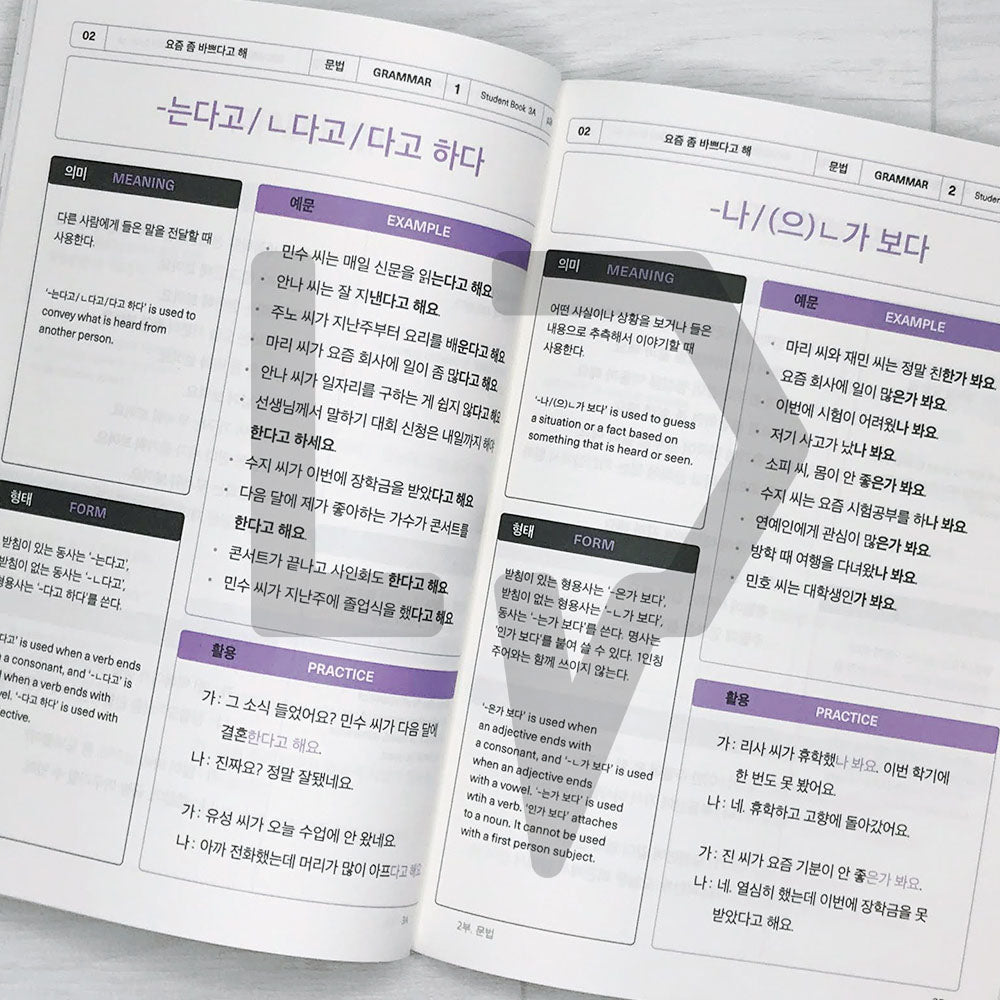 02 요즘 좀 바쁘다고 해 문법 GRAMMAR 1 Student Book 3A
-는다고/ㄴ다고/다고 하다
의미 MEANING
다른 사람에게 들은 말을 전달할 때
사용한다.
‘-는다고/ㄴ다고/다고 하다’ is used to
convey what is heard from
another person.
예문 EXAMPLE
• 민수 씨는 매일 신문을 읽는다고 해요.
• 안나 씨는 잘 지낸다고 해요.
• 주노 씨가 지난주부터 요리를 배운다고 해요
• 마리 씨가 요즘 회사에 일이 좀 많다고 해요
• 안나 씨가 일자리를 구하는 게 쉽지 않다고 해요
• 선생님께서 말하기 대회 신청은 내일까지 해야
한다고 하세요.
• 수지 씨가 이번에 장학금을 받았다고 해요
• 다음 달에 제가 좋아하는 가수가 콘서트를
한다고 해요.
• 콘서트가 끝나고 사인회도 한다고 해요.
• 민수 씨가 지난주에 졸업식을 했다고 해요
형태 FORM
받침이 있는 동사는 ‘-는다고’,
받침이 없는 동사는 ‘-ㄴ다고’,
형용사는 ‘-다고 하다’를 쓴다.
다고’ is used when a verb ends
a consonant, and ‘-ㄴ다고’ is
when a verb ends with
vowel. ‘-다고 하다’ is used with
adjective.
활용 PRACTICE
가: 그 소식 들었어요? 민수 씨가 다음 달에
결혼한다고 해요.
나: 진짜요? 정말 잘됐네요.
가: 유성 씨가 오늘 수업에 안 왔네요.
나: 아까 전화했는데 머리가 많이 아프다고 해요
34
02 요즘 좀 바쁘다고 해 문법 GRAMMAR 2 Student
-나/(으)ㄴ가 보다
의미 MEANING
어떤 사실이나 상황을 보거나 들은
내용으로 추측해서 이야기할 때
사용한다.
‘-나/(으)ㄴ가 보다’ is used to guess
a situation or a fact based on
something that is heard or seen.
예문 EXAMPLE
• 마리 씨와 재민 씨는 정말 친한가 봐요.
• 요즘 회사에 일이 많은가 봐요.
• 이번에 시험이 어려웠나 봐요.
• 저기 사고가 났나 봐요.
• 소피 씨, 몸이 안 좋은가 봐요.
• 수지 씨는 요즘 시험공부를 하나 봐요.
• 연예인에게 관심이 많은가 봐요.
• 방학 때 여행을 다녀왔나 봐요.
• 민호 씨는 대학생인가 봐요.
형태 FORM
받침이 있는 형용사는 ‘-은가 보다’,
받침이 없는 형용사는 ‘-ㄴ가 보다’,
동사는 ‘-는가 보다’를 쓴다. 명사는
‘인가 보다’를 붙여 쓸 수 있다. 1인칭
주어와는 함께 쓰이지 않는다.
‘-은가 보다’ is used when
an adjective ends with
a consonant, and ‘-ㄴ가 보다’ is used
when an adjective ends
with a vowel. ‘-는가 보다’ is used
wtih a verb. ‘인가 보다’ attaches
to a noun. It cannot be used
with a first person subject.
활용 PRACTICE
가: 리사 씨가 휴학했나 봐요. 이번 학기에
한 번도 못 봤어요.
나: 네. 휴학하고 고향에 돌아갔어요.
가: 진 씨가 요즘 기분이 안 좋은가 봐요.
나: 네. 열심히 했는데 이번에 장학금을 못
받았다고 해요.
2부. 문법